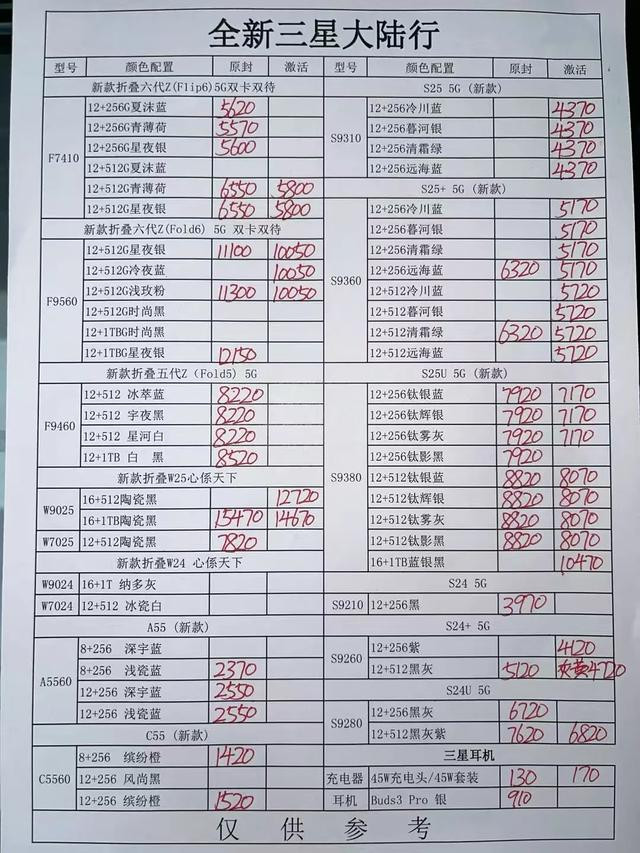 全新三星大陆行
型号 颜色配置 原封 激活
新款折叠六代Z(Flip6)5G双卡双待
F7410
12+256G夏沫蓝 5620
12+256G青薄荷 5570
12+256G星夜银 5600
12+512G夏沫蓝
12+512G青薄荷 6550 5800
12+512G星夜银 6550 5800
新款折叠六代Z(Fold6) 5G 双卡双待
F9560
12+512G星夜银 11100 10050
12+512G冷夜蓝 10050
12+512G浅玫粉 11300 10050
12+512G时尚黑
12+1TBG时尚黑
12+1TBG星夜银 12150
新款折叠五代Z (Fold5) 5G
F9460
12+512 冰萃蓝 8220
12+512 宇夜黑 8220
12+512 星河白 8220
12+1TB 白 黑 8520
新款折叠W25心係天下
W9025
16+512陶瓷黑 12720
16+1TB陶瓷黑 15470 14670
W7025 12+512陶瓷黑 7820
新款折叠W24 心係天下
W9024 16+1T 纳多灰
W7024 12+512 冰瓷白
A55 (新款)
A5560
8+256 深宇蓝
8+256 浅瓷蓝 2370
12+256 深宇蓝 2550
12+256 浅瓷蓝 2550
C55 (新款)
C5560
8+256 缤纷橙 1420
12+256 风尚黑
12+256 缤纷橙 1520
型号 颜色配置 原封 激活
S25 5G (新款)
S9310
12+256冷川蓝 4370
12+256暮河银 4370
12+256清霜绿 4370
12+256远海蓝 4370
S25+ 5G (新款)
S9360
12+256冷川蓝 5170
12+256暮河银 5170
12+256清霜绿 5170
12+256远海蓝 6320 5170
12+512冷川蓝 5720
12+512暮河银 5720
12+512清霜绿 6320 5720
12+512远海蓝 5720
S25U 5G (新款)
S9380
12+256钛银蓝 7920 7170
12+256钛辉银 7920 7170
12+256钛雾灰 7920 7170
12+256钛影黑 7920
12+512钛银蓝 8820 8070
12+512钛辉银 8820 8070
12+512钛雾灰 8820 8070
12+512钛影黑 8820 8070
16+1TB蓝银黑 10470
S24 5G
S9210 12+256黑 3970
S24+ 5G
S9260
12+256紫 4120
12+512黑灰 5120 灰黄4720
S24U 5G
S9280
12+256黑灰 6720
12+512黑灰紫 7620 6820
三星耳机
充电器 45W充电头/45W套装 130 170
耳机 Buds3 Pro 银 910
仅供参考